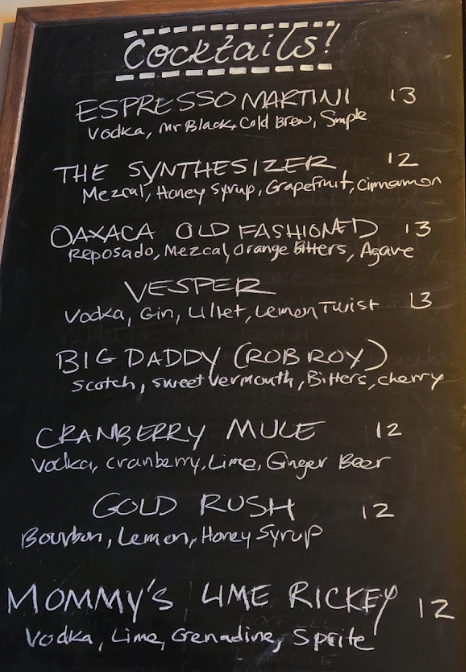 Cocktails!
ESPRESSO MARTINI 13
Vodka, Mr Black, Cold Brew, Simple
THE SYNTHESIZER 12
Mezcal, Honey Syrup, Grapefruit, Cinnamon
OAXACA OLD FASHIONED 13
Reposado, Mezcal, Orange Bitters, Agave
VESPER
Vodka, Gin, Lillet, Lemon Twist 13
BIG DADDY (ROB ROY)
Scotch, sweet vermouth, Bitters, cherry
CRANBERRY MULE 12
Vodka, cranberry, Lime, Ginger Beer
GOLD RUSH 12
Bourbon, Lemon, Honey Syrup
MOMMY'S LIME RICKEY 12
Vodka, Lime, Grenadine, Sprite